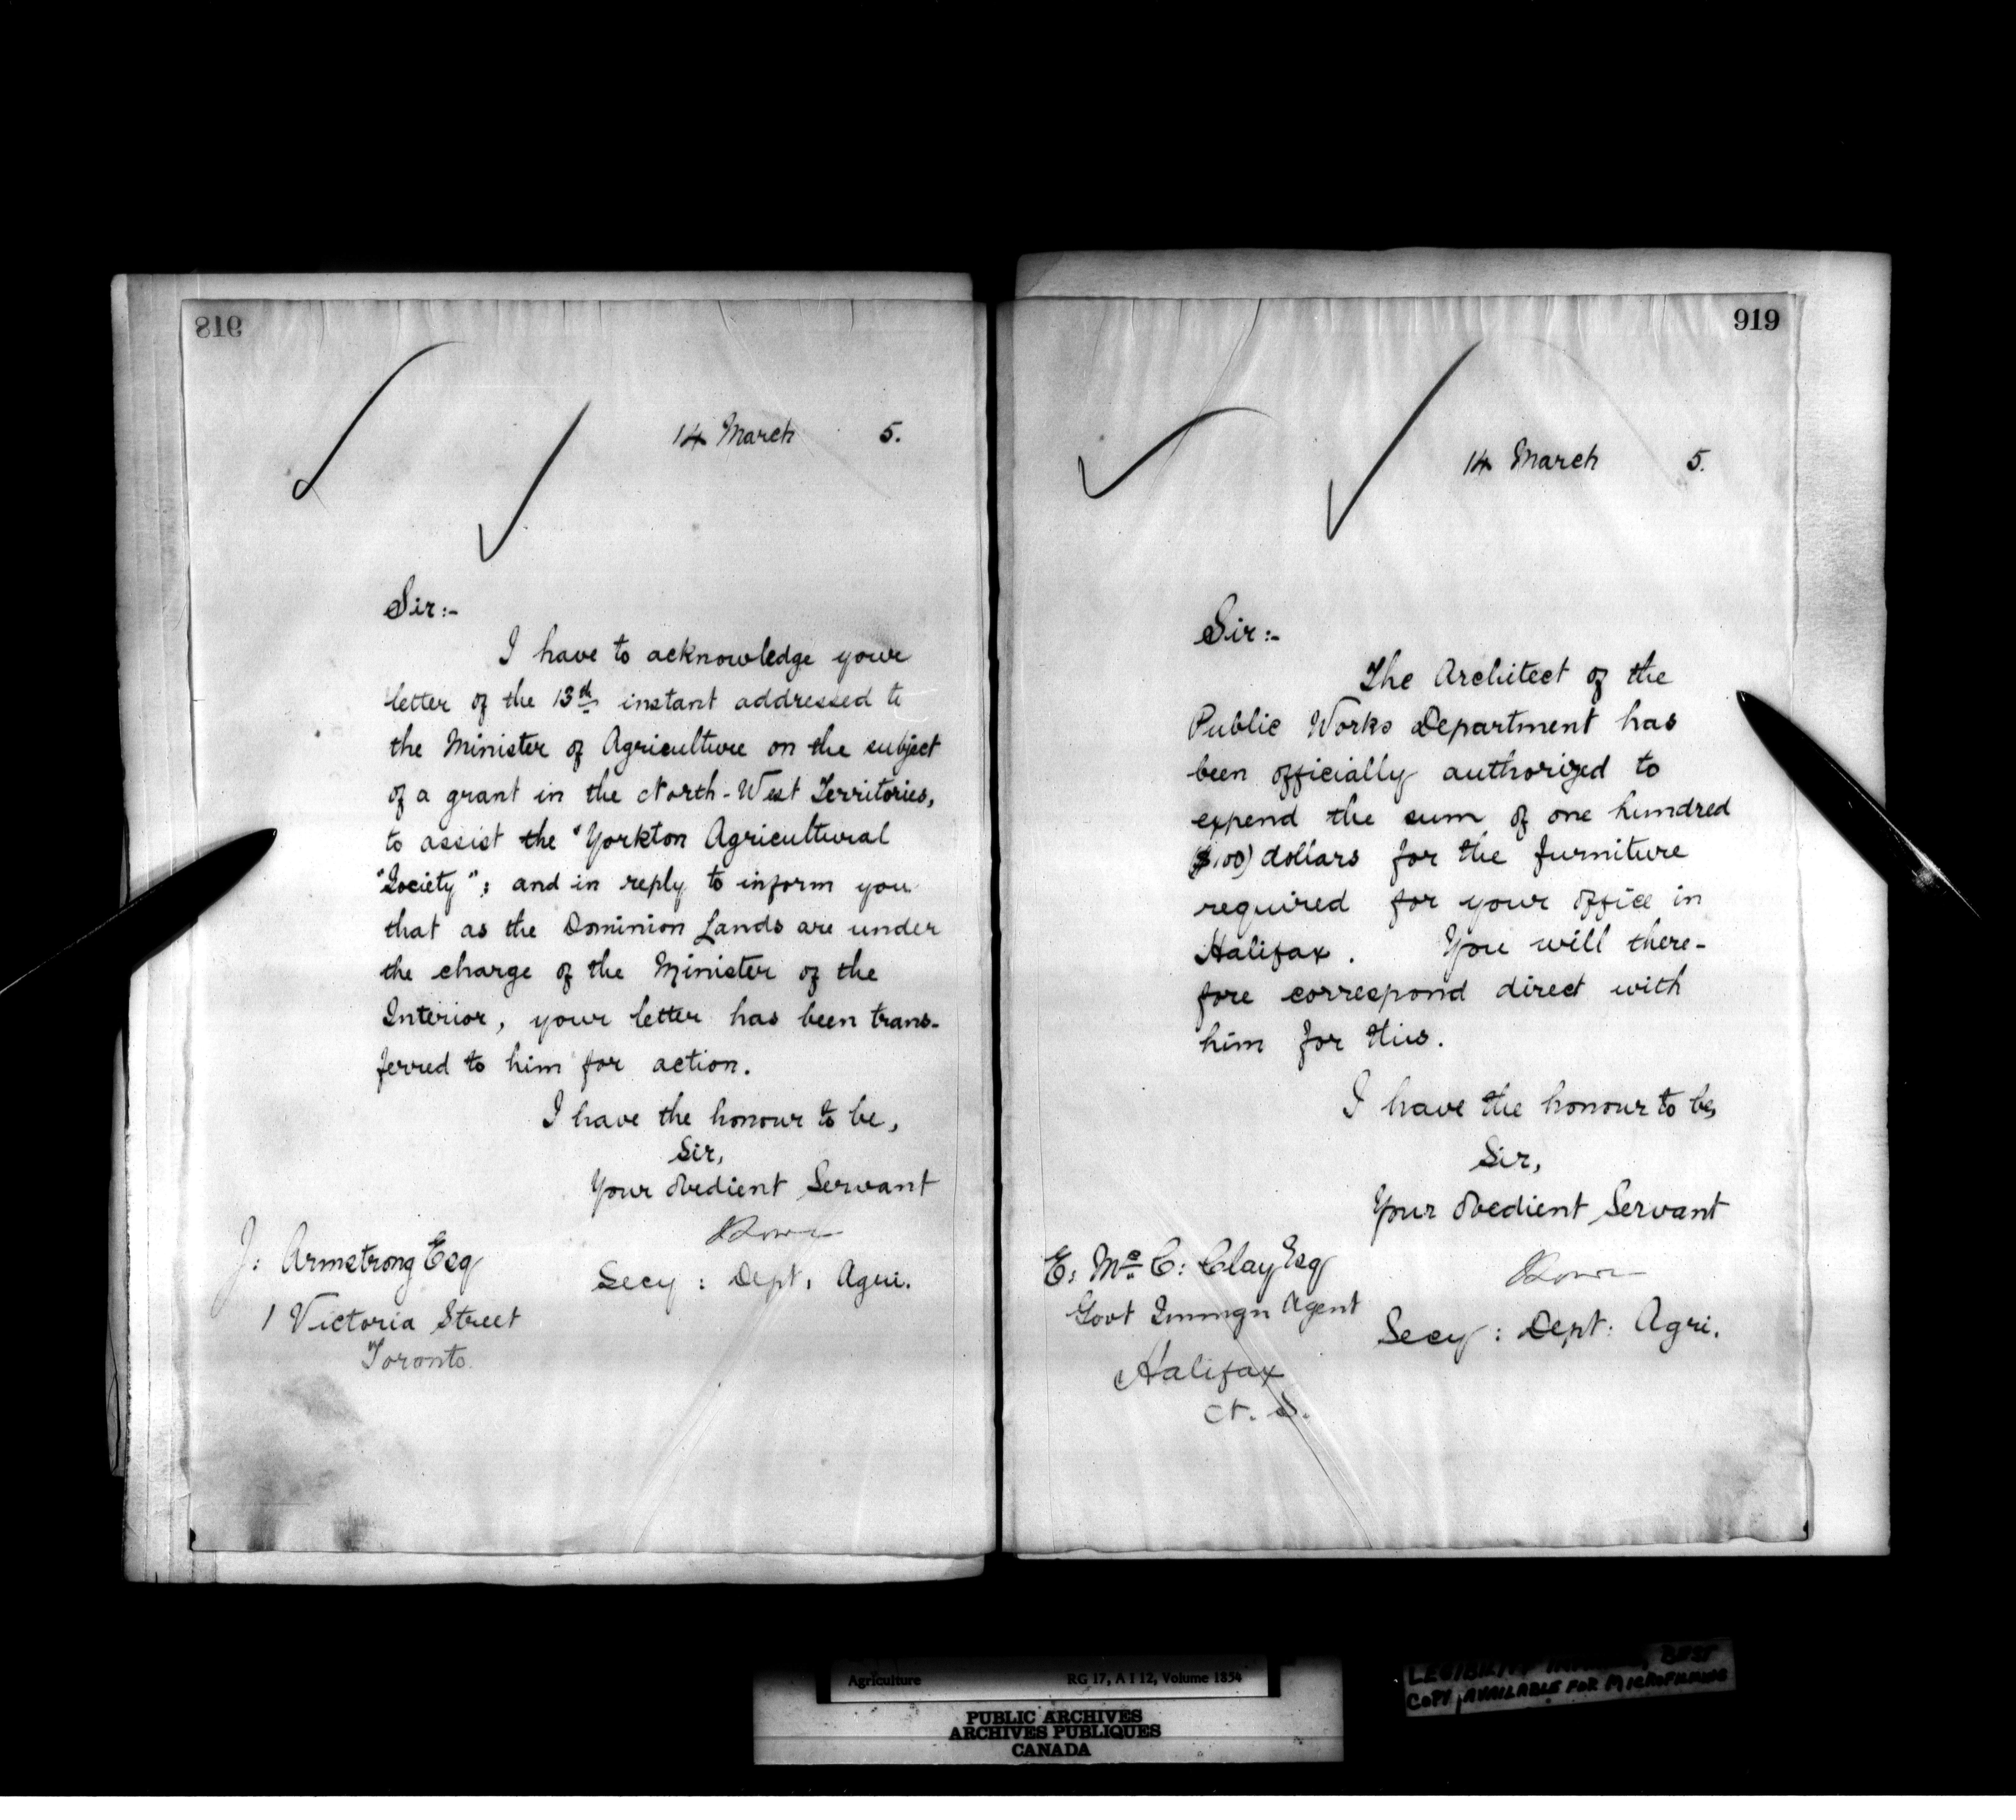 918
14 March 5.
Sir:-
I have to acknowledge your
letter of the 13th instant addressed to
the Minister of Agriculture on the subject
of a grant in the North-West Territories,
to assist the "Yorkton Agricultural
"Society": and in reply to inform you
that as the Dominion Lands are under
the charge of the Minister of the
Interior, your letter has been trans-
ferred to him for action.
I have the honour to be,
Sir,
Your obedient Servant
Secy: Dept, Agri.
J: Armstrong Esq
1 Victoria Street
Toronto.
919
14 March 5.
Sir:-
The Architect of the
Public Works Department has
been officially authorized to
expend the sum of one hundred
($100) dollars for the furniture
required for your office in
Halifax. You will there-
fore correspond direct with
him for this.
I have the honour to be,
Sir,
Your obedient Servant
Secy: Dept: Agri.
E: Mc C: Clay Esq
Govt Immgn Agent
Halifax
N. S.
Agriculture RG 17, A I 12, Volume 1854
PUBLIC ARCHIVES
ARCHIVES PUBLIQUES
CANADA
BEST
COPY AVAILABLE FOR MICROFILMING